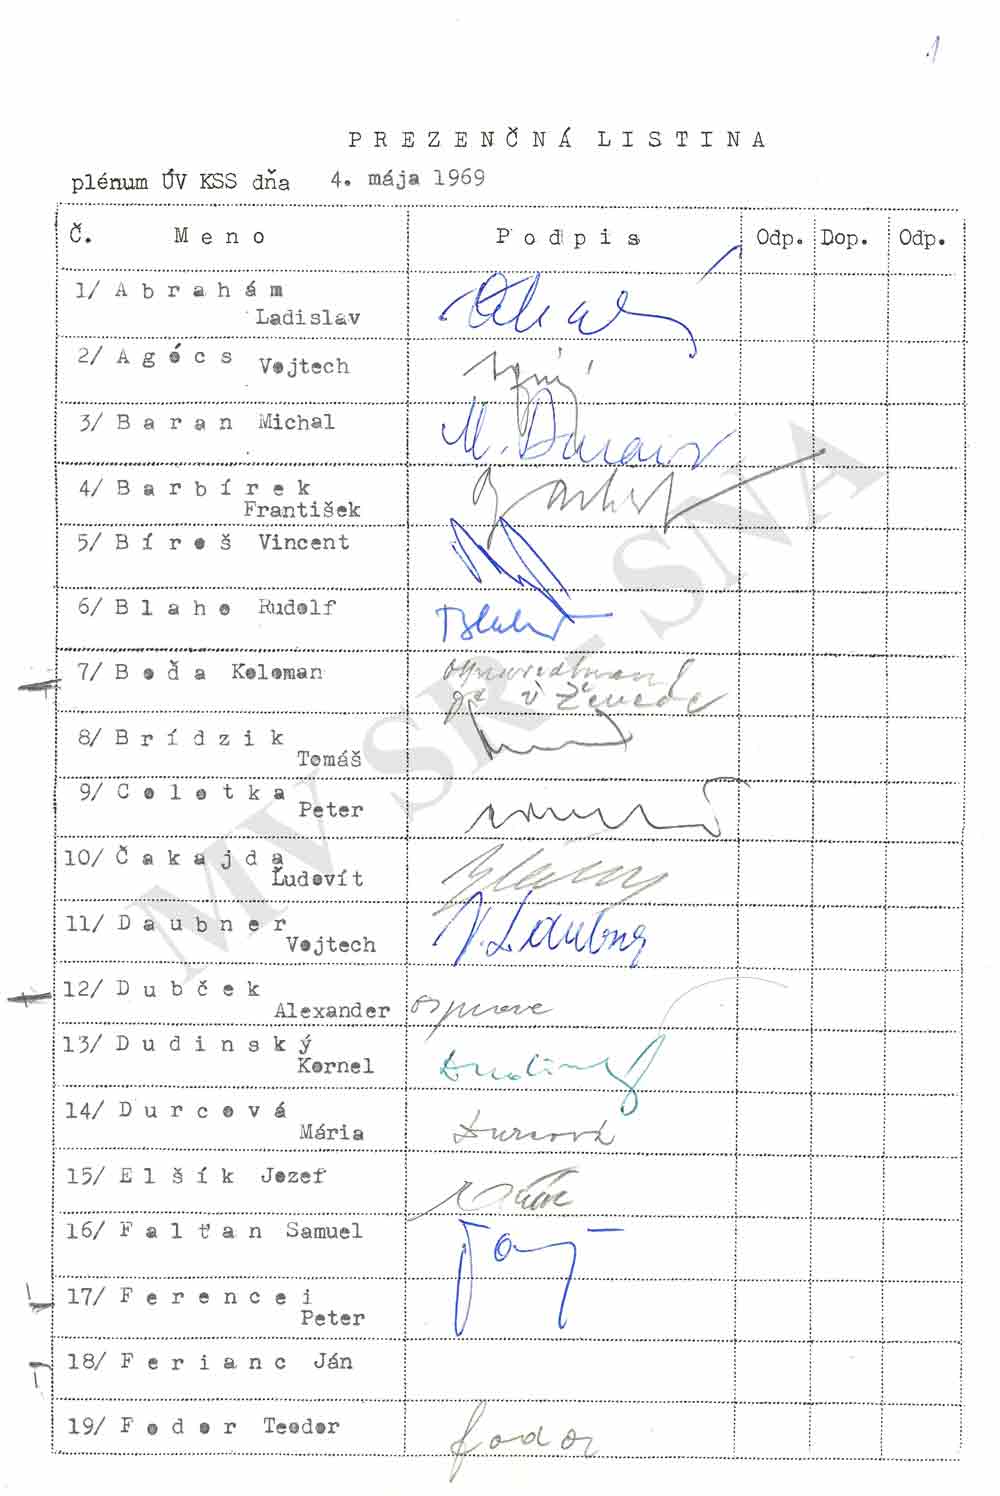 1
PREZENČNÁ LISTINA
plénum ÚV KSS dňa 4. mája 1969
Č. Meno Podpis Odp. Dop. Odp.
1/ Abrahám
Ladislav
2/ Agócs Vojtech
3/ Baran Michal M. Baran
4/ Barbírek
František
5/ Bíroš Vincent
6/ Blaho Rudolf Blaho
7/ Boďa Koloman ospravedlnený
je v Ženeve
8/ Brídzik
Tomáš
9/ Colotka
Peter
10/ Čakajda
Ľudovít
11/ Daubner
Vojtech V. Daubner
12/ Dubček
Alexander osprave
13/ Dudinský
Kornel Dudinský
14/ Durcová
Mária Durcová
15/ Elšík Jozef
16/ Falťan Samuel
17/ Ferencei
Peter
18/ Ferianc Ján
19/ Fodor Teodor fodor
MV SR - SNA